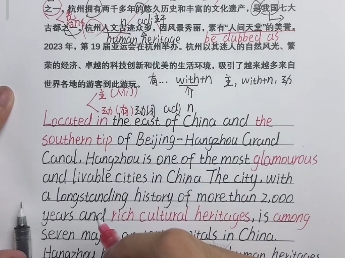 之一，杭州拥有两千多年的悠久历史和丰富的文化遗产，是我国七大
n adj
古都之一，杭州人文古迹众多，因风景秀丽，素有“人间天堂”的美誉。
human heritage be dubbed as
2023年，第19届亚运会在杭州举办。杭州以其迷人的自然风光、繁
荣的经济、卓越的科技创新和优美的生活环境，吸引了越来越多来自
世界各地的游客到此游玩。 有... with+n 主, with+n, 动
adj n
Located in the east of China and the
southern tip of Beijing-Hangzhou Grand
Canal, Hangzhou is one of the most glamourous
and livable cities in China The city, with
a longstanding history of more than 2,000
years and rich cultural heritages, is among
seven capitals in China.
Hangzhou human heritages